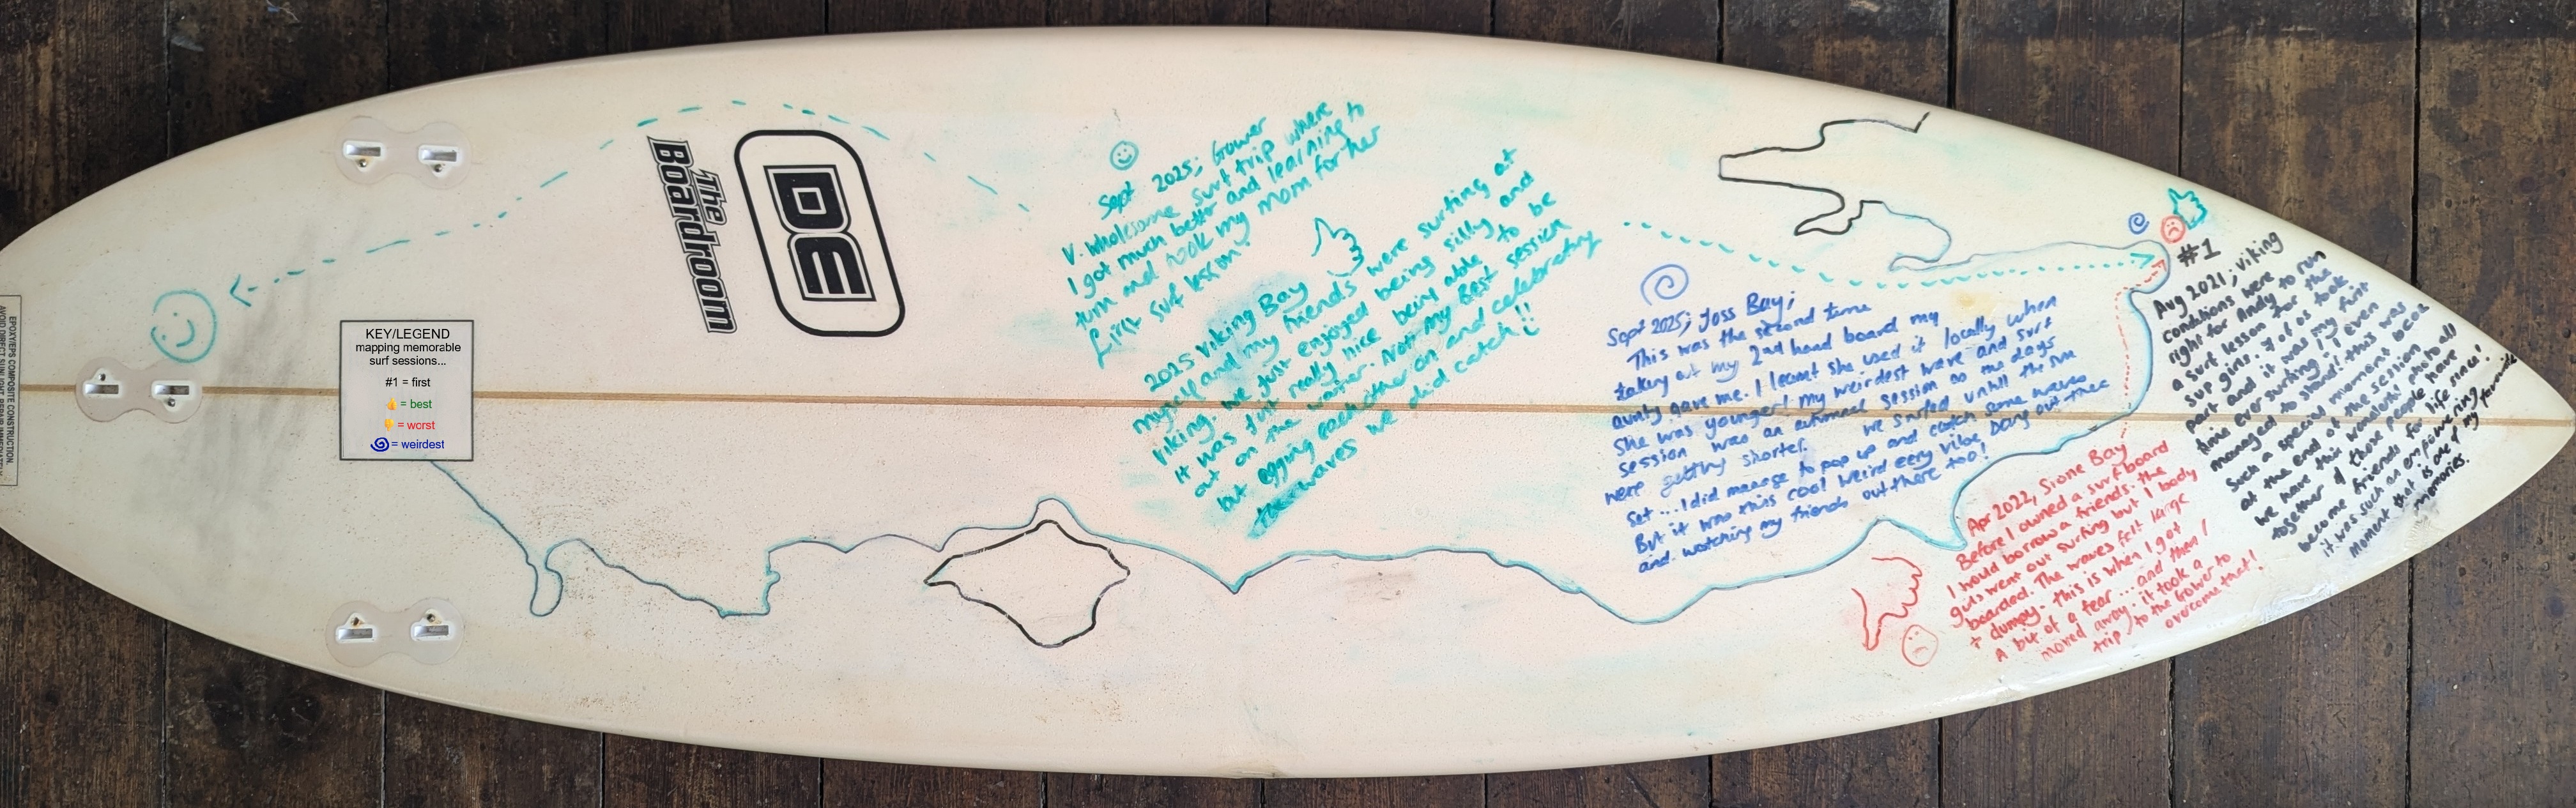 EPOXY/EPS COMPOSITE CONSTRUCTION.
KEY/LEGEND
mapping memorable
surf sessions...
#1 = first
👍 = best
👎 = worst
= weirdest
The
Boardroom
DE
Sept 2025; Gower
V. wholesome surf trip where
I got much better and learning to
turn and took my mom for her
first surf lesson
2025 Viking Bay
myself and my friends were surfing at
viking. we just enjoyed being silly and
it was just really nice being able to be
out on the water. Not my Best session
but egging each other on and celebrating
the waves we did catch!!
Sept 2025; Joss Bay;
This was the second time
taking out my 2nd hand board my
aunty gave me. I learnt she used it locally when
she was younger! my weirdest wave and surf
session was an autumnal session as the days
were getting shorter. we surfed untill the sun
set ... I did manage to pop up and catch some waves
But it was this cool weird eery vibe being out there
and watching my friends out there too!
#1
Aug 2021; viking
conditions were
right for Andy to run
a surf lesson for the
sup girls. 7 of us took
part and it was my first
time ever surfing & I even
managed to stand! this was
such a special moment becoz
at the end of the session
we have this wonderful photo all
together & those people have
become friends for life since!
it was such an empowering
moment that is one of my favourite
memories.
Apr 2022, Stone Bay
Before I owned a surfboard
I would borrow a friends. the
guys went out surfing but I body
boarded. The waves felt large
+ dumpy. this is when I got
a bit of a fear ... and then I
moved away. it took a
trip to the Gower to
overcome that!